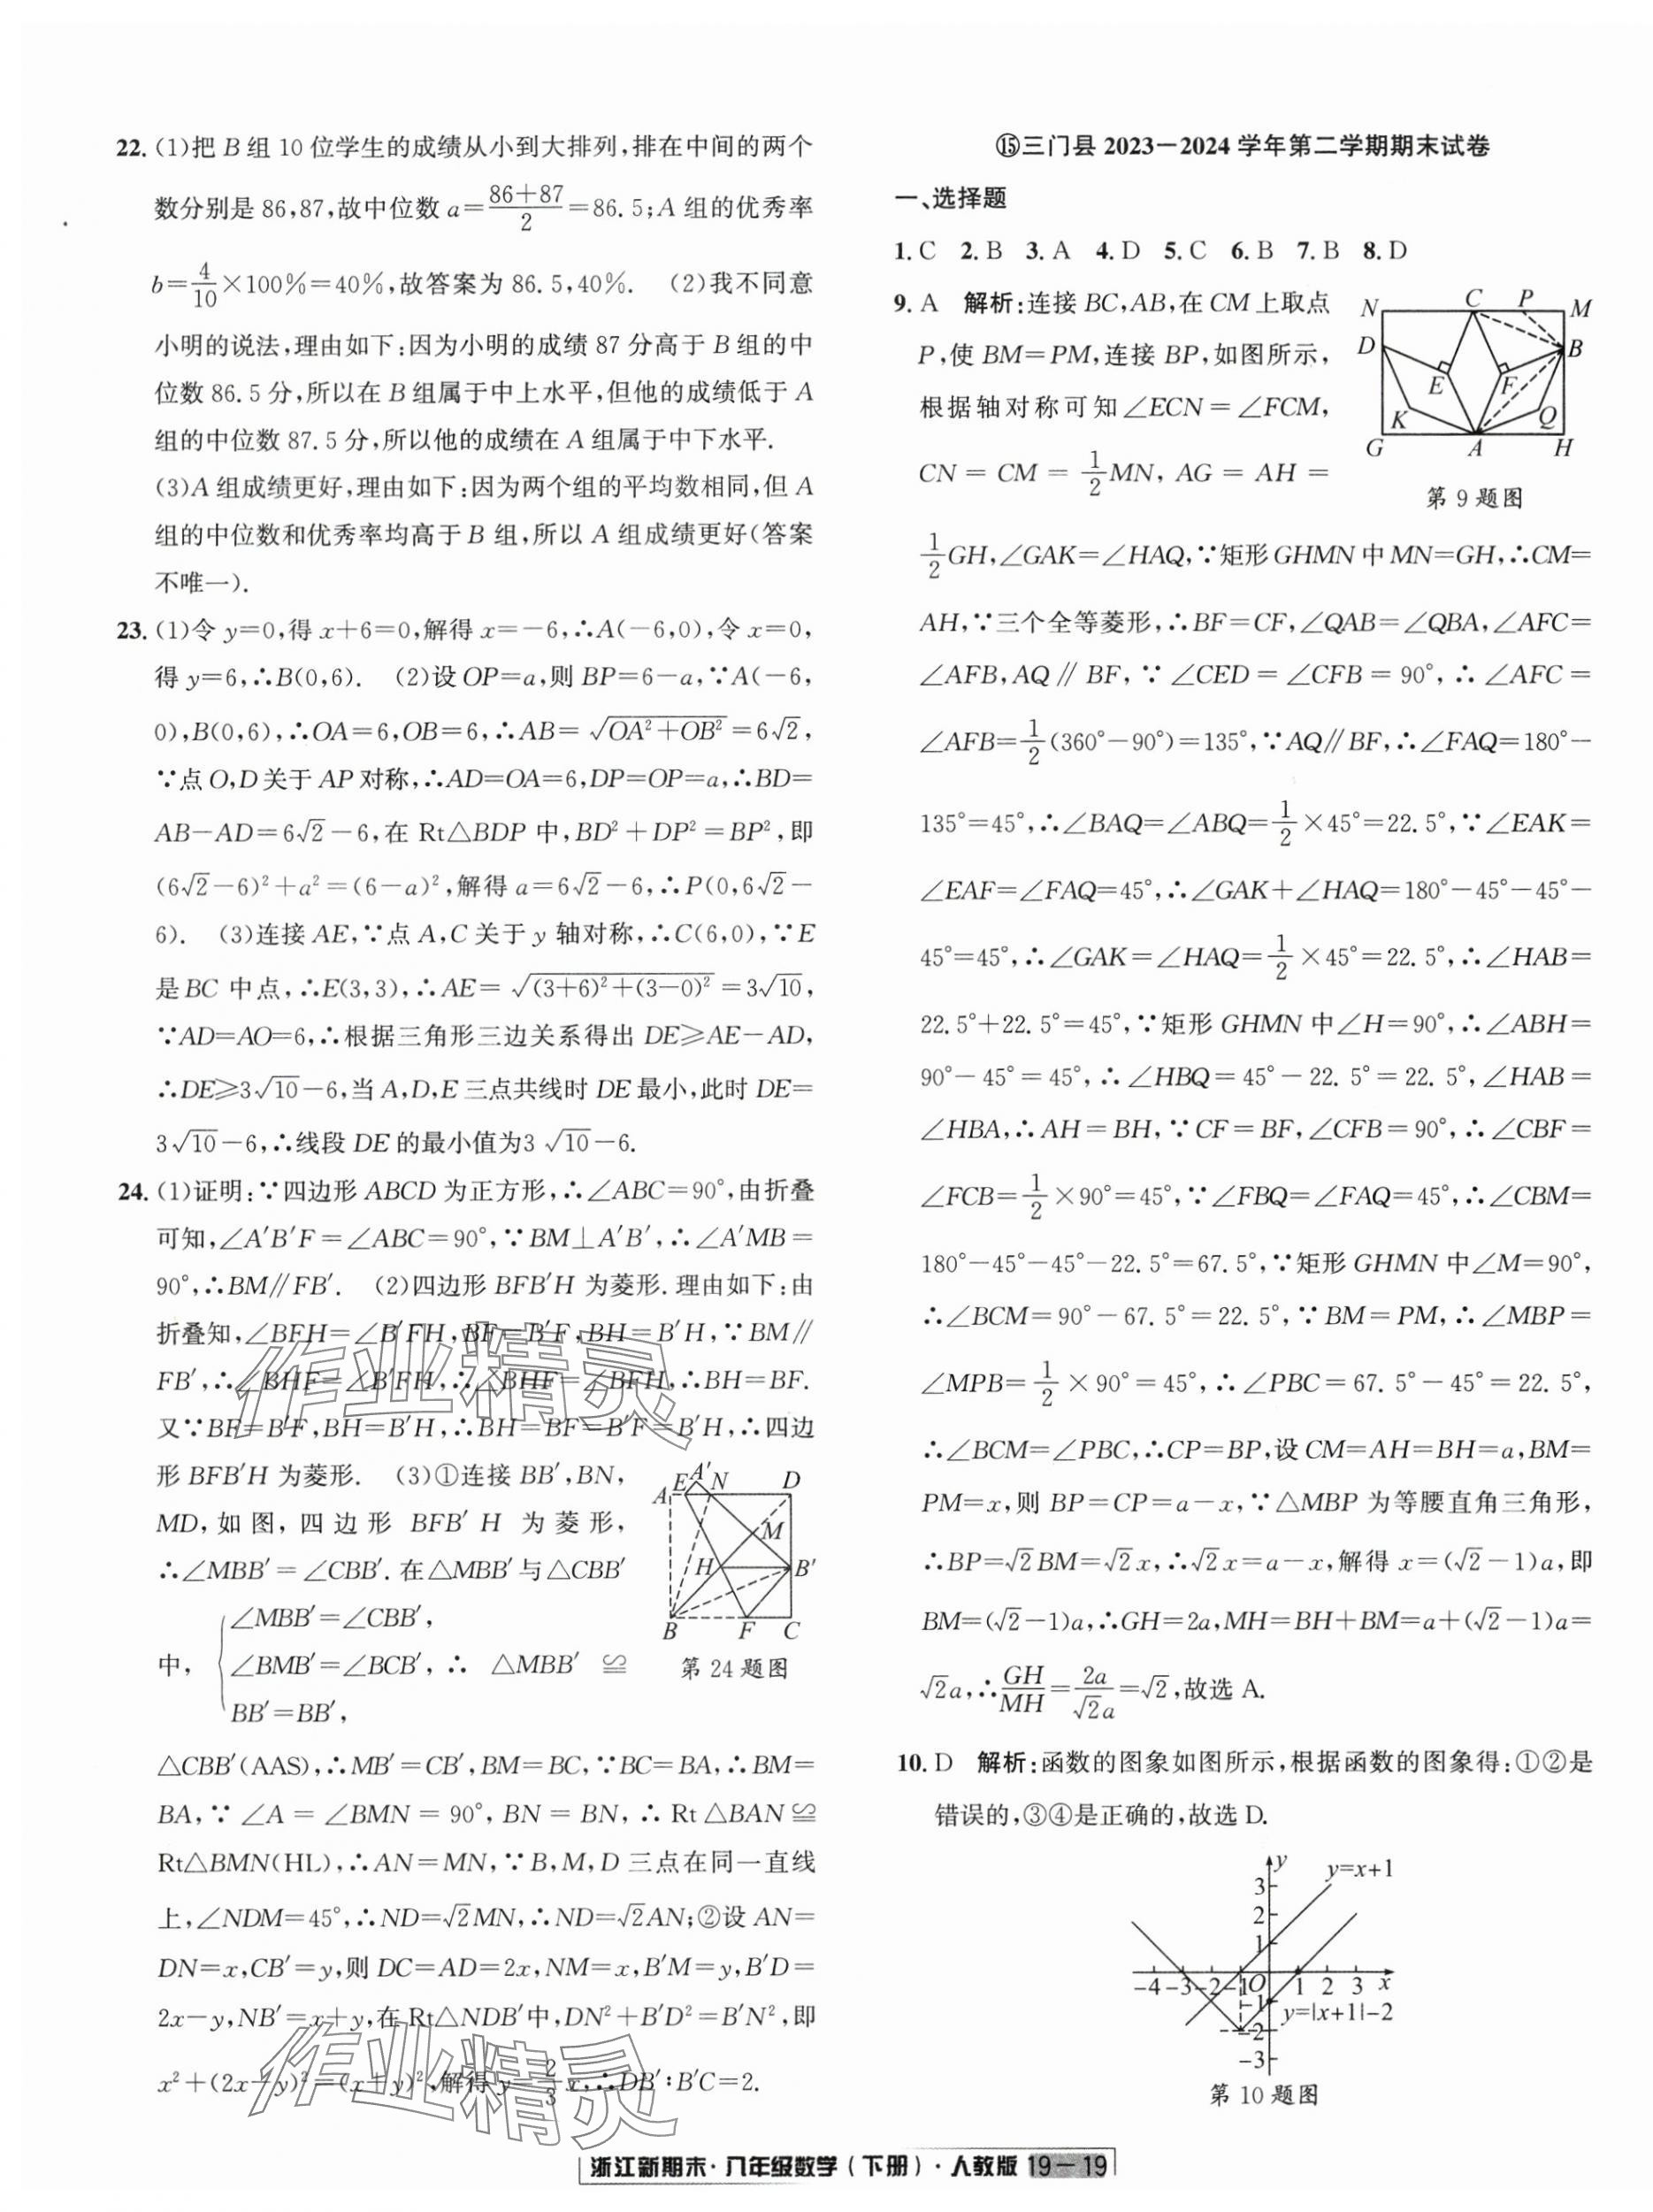 22. (1)把 B 组 10 位学生的成绩从小到大排列,排在中间的两个
数分别是 86,87,故中位数 a=\frac{86+87}{2}=86.5;A 组的优秀率
b=\frac{4}{10}×100%=40%,故答案为 86.5,40%. (2)我不同意
小明的说法,理由如下:因为小明的成绩 87 分高于 B 组的中
位数 86.5 分,所以在 B 组属于中上水平,但他的成绩低于 A
组的中位数 87.5 分,所以他的成绩在 A 组属于中下水平.
(3)A 组成绩更好,理由如下:因为两个组的平均数相同,但 A
组的中位数和优秀率均高于 B 组,所以 A 组成绩更好(答案
不唯一).
23. (1)令 y=0,得 x+6=0,解得 x=-6,∴A(-6,0),令 x=0,
得 y=6,∴B(0,6). (2)设 OP=a,则 BP=6-a,∵A(-6,
0),B(0,6),∴OA=6,OB=6,∴AB=√(OA²+OB²)=6√2,
∵点 O,D 关于 AP 对称,∴AD=OA=6,DP=OP=a,∴BD=
AB-AD=6√2-6,在 Rt△BDP 中,BD²+DP²=BP²,即
(6√2-6)²+a²=(6-a)²,解得 a=6√2-6,∴P(0,6√2-
6). (3)连接 AE,∵点 A,C 关于 y 轴对称,∴C(6,0),∵E
是 BC 中点,∴E(3,3),∴AE=√((3+6)²+(3-0)²)=3√10,
∵AD=AO=6,∴根据三角形三边关系得出 DE≥AE-AD,
∴DE≥3√10-6,当 A,D,E 三点共线时 DE 最小,此时 DE=
3√10-6,∴线段 DE 的最小值为3√10-6.
24. (1)证明:∵四边形 ABCD 为正方形,∴∠ABC=90°,由折叠
可知,∠A′B′F=∠ABC=90°,∵BM⊥A′B′,∴∠A′MB=
90°,∴BM∥FB′. (2)四边形 BFB′H 为菱形.理由如下:由
折叠知,∠BFH=∠B′FH,BF=B′F,BH=B′H,∵BM∥
FB′,∴∠BHF=∠B′FH,∴∠BHF=∠BFH,∴BH=BF.
又∵BF=B′F,BH=B′H,∴BH=BF=B′F=B′H,∴四边
形 BFB′H 为菱形. (3)①连接 BB′,BN,
MD,如图,四边形 BFB′H 为菱形,
∴∠MBB′=∠CBB′.在△MBB′与△CBB′
∠MBB′=∠CBB′,
中, ∠BMB′=∠BCB′, ∴ △MBB′ ≌
BB′=BB′,
A E A′ N D
M
H B′
B F C
第 24 题图
△CBB′(AAS),∴MB′=CB′,BM=BC,∵BC=BA,∴BM=
BA,∵∠A=∠BMN=90°,BN=BN,∴Rt△BAN≌
Rt△BMN(HL),∴AN=MN,∵B,M,D 三点在同一直线
上,∠NDM=45°,∴ND=√2MN,∴ND=√2AN;②设 AN=
DN=x,CB′=y,则 DC=AD=2x,NM=x,B′M=y,B′D=
2x-y,NB′=x+y,在 Rt△NDB′中,DN²+B′D²=B′N²,即
x²+(2x-y)²=(x+y)²,解得 y=\frac{2}{3}x,∴DB′:B′C=2.
⑮三门县 2023-2024 学年第二学期期末试卷
一、选择题
1. C 2. B 3. A 4. D 5. C 6. B 7. B 8. D
9. A 解析:连接 BC,AB,在 CM 上取点
P,使 BM=PM,连接 BP,如图所示,
根据轴对称可知∠ECN=∠FCM,
CN=CM=\frac{1}{2}MN,AG=AH=
N C P M
D B
E F
K Q
G A H
第 9 题图
\frac{1}{2}GH,∠GAK=∠HAQ,∵矩形 GHMN 中 MN=GH,∴CM=
AH,∵三个全等菱形,∴BF=CF,∠QAB=∠QBA,∠AFC=
∠AFB,AQ∥BF,∵∠CED=∠CFB=90°,∴∠AFC=
∠AFB=\frac{1}{2}(360°-90°)=135°,∵AQ∥BF,∴∠FAQ=180°-
135°=45°,∴∠BAQ=∠ABQ=\frac{1}{2}×45°=22.5°,∵∠EAK=
∠EAF=∠FAQ=45°,∴∠GAK+∠HAQ=180°-45°-45°-
45°=45°,∴∠GAK=∠HAQ=\frac{1}{2}×45°=22.5°,∴∠HAB=
22.5°+22.5°=45°,∵矩形 GHMN 中∠H=90°,∴∠ABH=
90°-45°=45°,∴∠HBQ=45°-22.5°=22.5°,∠HAB=
∠HBA,∴AH=BH,∵CF=BF,∠CFB=90°,∴∠CBF=
∠FCB=\frac{1}{2}×90°=45°,∵∠FBQ=∠FAQ=45°,∴∠CBM=
180°-45°-45°-22.5°=67.5°,∵矩形 GHMN 中∠M=90°,
∴∠BCM=90°-67.5°=22.5°,∵BM=PM,∴∠MBP=
∠MPB=\frac{1}{2}×90°=45°,∴∠PBC=67.5°-45°=22.5°,
∴∠BCM=∠PBC,∴CP=BP,设 CM=AH=BH=a,BM=
PM=x,则 BP=CP=a-x,∵△MBP 为等腰直角三角形,
∴BP=√2BM=√2x,∴√2x=a-x,解得 x=(√2-1)a,即
BM=(√2-1)a,∴GH=2a,MH=BH+BM=a+(√2-1)a=
√2a,∴\frac{GH}{MH}=\frac{2a}{√2a}=√2,故选 A.
10. D 解析:函数的图象如图所示,根据函数的图象得:①②是
错误的,③④是正确的,故选 D.
y
y=x+1
3
2
1
-4 -3 -2 -1 O 1 2 3 x
-1
y=|x+1|-2
-2
-3
第 10 题图
作业精灵
作业精灵
浙江新期末·八年级数学(下册)·人教版 19-19